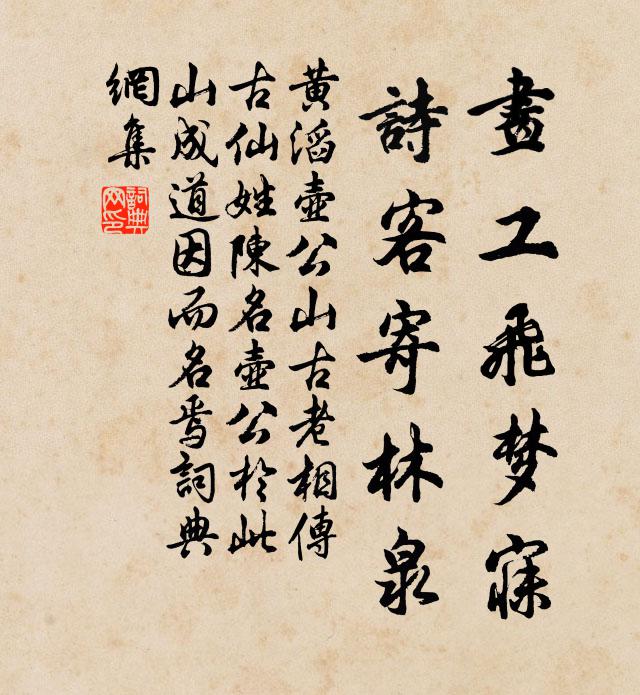 畫工飛梦寐
詩客寄林泉
黄滔壺公山古老相傳
古仙姓陳名壺公於此
山成道因而名焉詞典
網集
詞典
网印